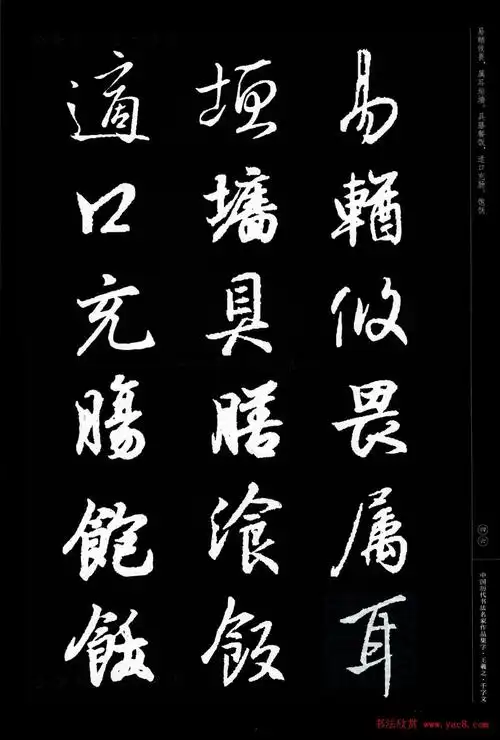 易輶攸畏属耳
垣墻具膳湌飯
適口充腸飽飫
易輶攸畏，属耳垣墙。具膳餐饭，适口充肠。饱饫
四六
中国历代书法名家作品集字·王羲之·千字文
书法欣赏 www.yac8.com